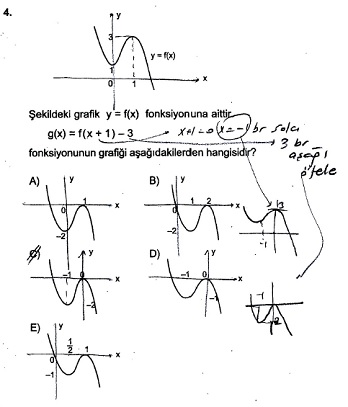 4.
y
3
y = f(x)
1
0 1 x
Şekildeki grafik y = f(x) fonksiyonuna aittir.
g(x) = f(x + 1) – 3 x+1=0 x=-1 br sola
3 br aşağı ötele
fonksiyonunun grafiği aşağıdakilerden hangisidir?
A) y B) y
0 1 x 0 1 2 x
-2 -2
13
-1
C) y D) y
-1 0 x -1 0 x
-2 -1
-1
-2
E) y
0 1/2 1 x
-1